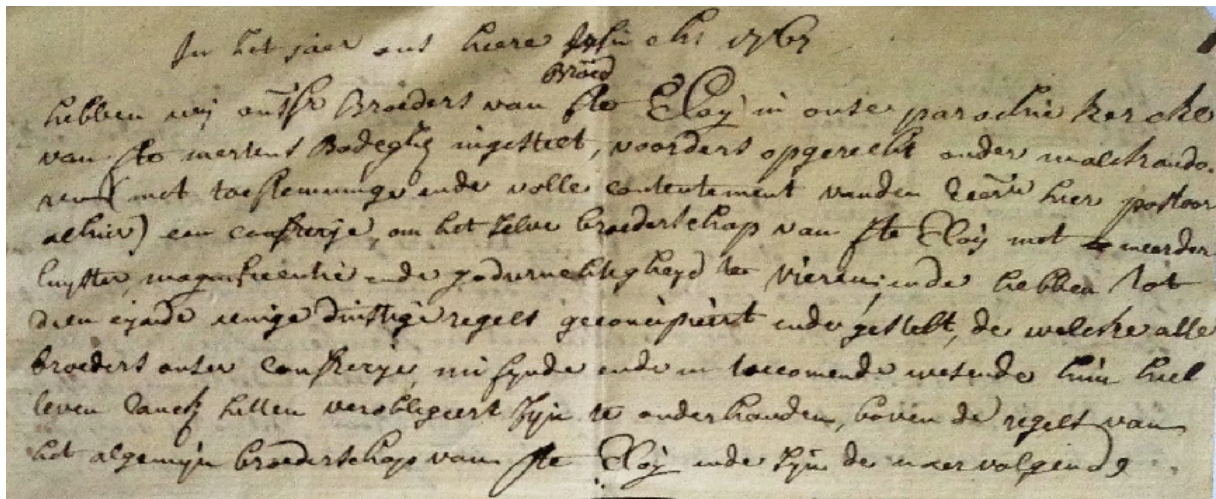 In het jaer ons heere Jesu chr 1767
Broed
hebben wij onse Broeders van ste Eloÿ in onse parochie kercke
van sto mertens Bodeghe ingestelt, voorders opgerecht onder malckando.
ren (met toestemminge ende volle contentement vanden Eerw heer pastoor
alhier) een confrerije, om het selve broederschap van ste Eloÿ met meerder
luijster, magnificentie ende godvruchtigheyd te vieren, ende hebben tot
dien eijnde eenige dinstige regels geconcipieert ende gestelt, de welcke alle
broeders onser confrerije nu synde ende in toecomende wesende hun heel
leven lanck sullen verobligeert sijn te onderhouden, boven de regels van
het algemijn broederschap van ste Eloÿ ende sijn de naervolgende